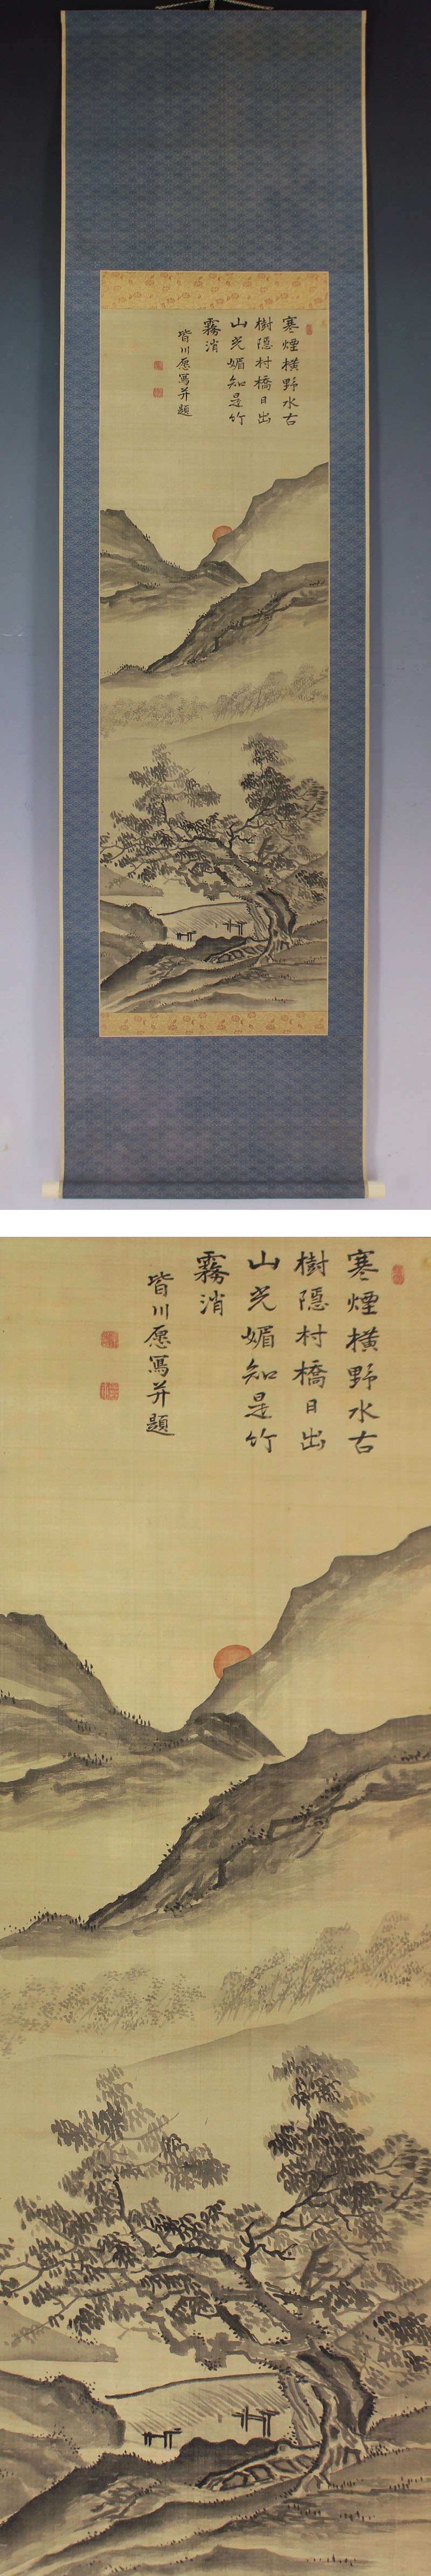 寒煙横野水古
樹隠村橋日出
山光媚知是竹
霧消
皆川愿寫并題
寒煙横野水古
樹隠村橋日出
山光媚知是竹
霧消
皆川愿寫并題